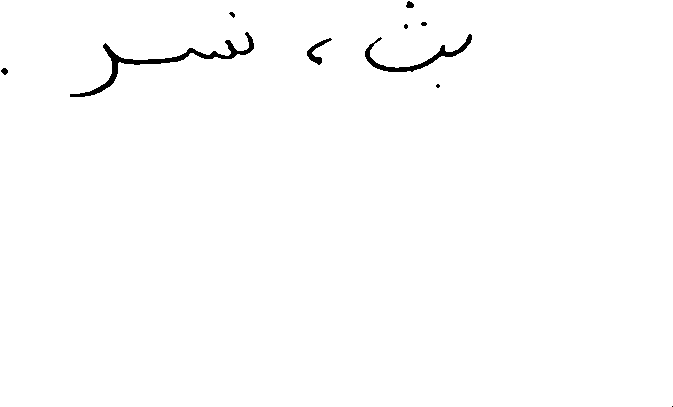 بث ، نسر .